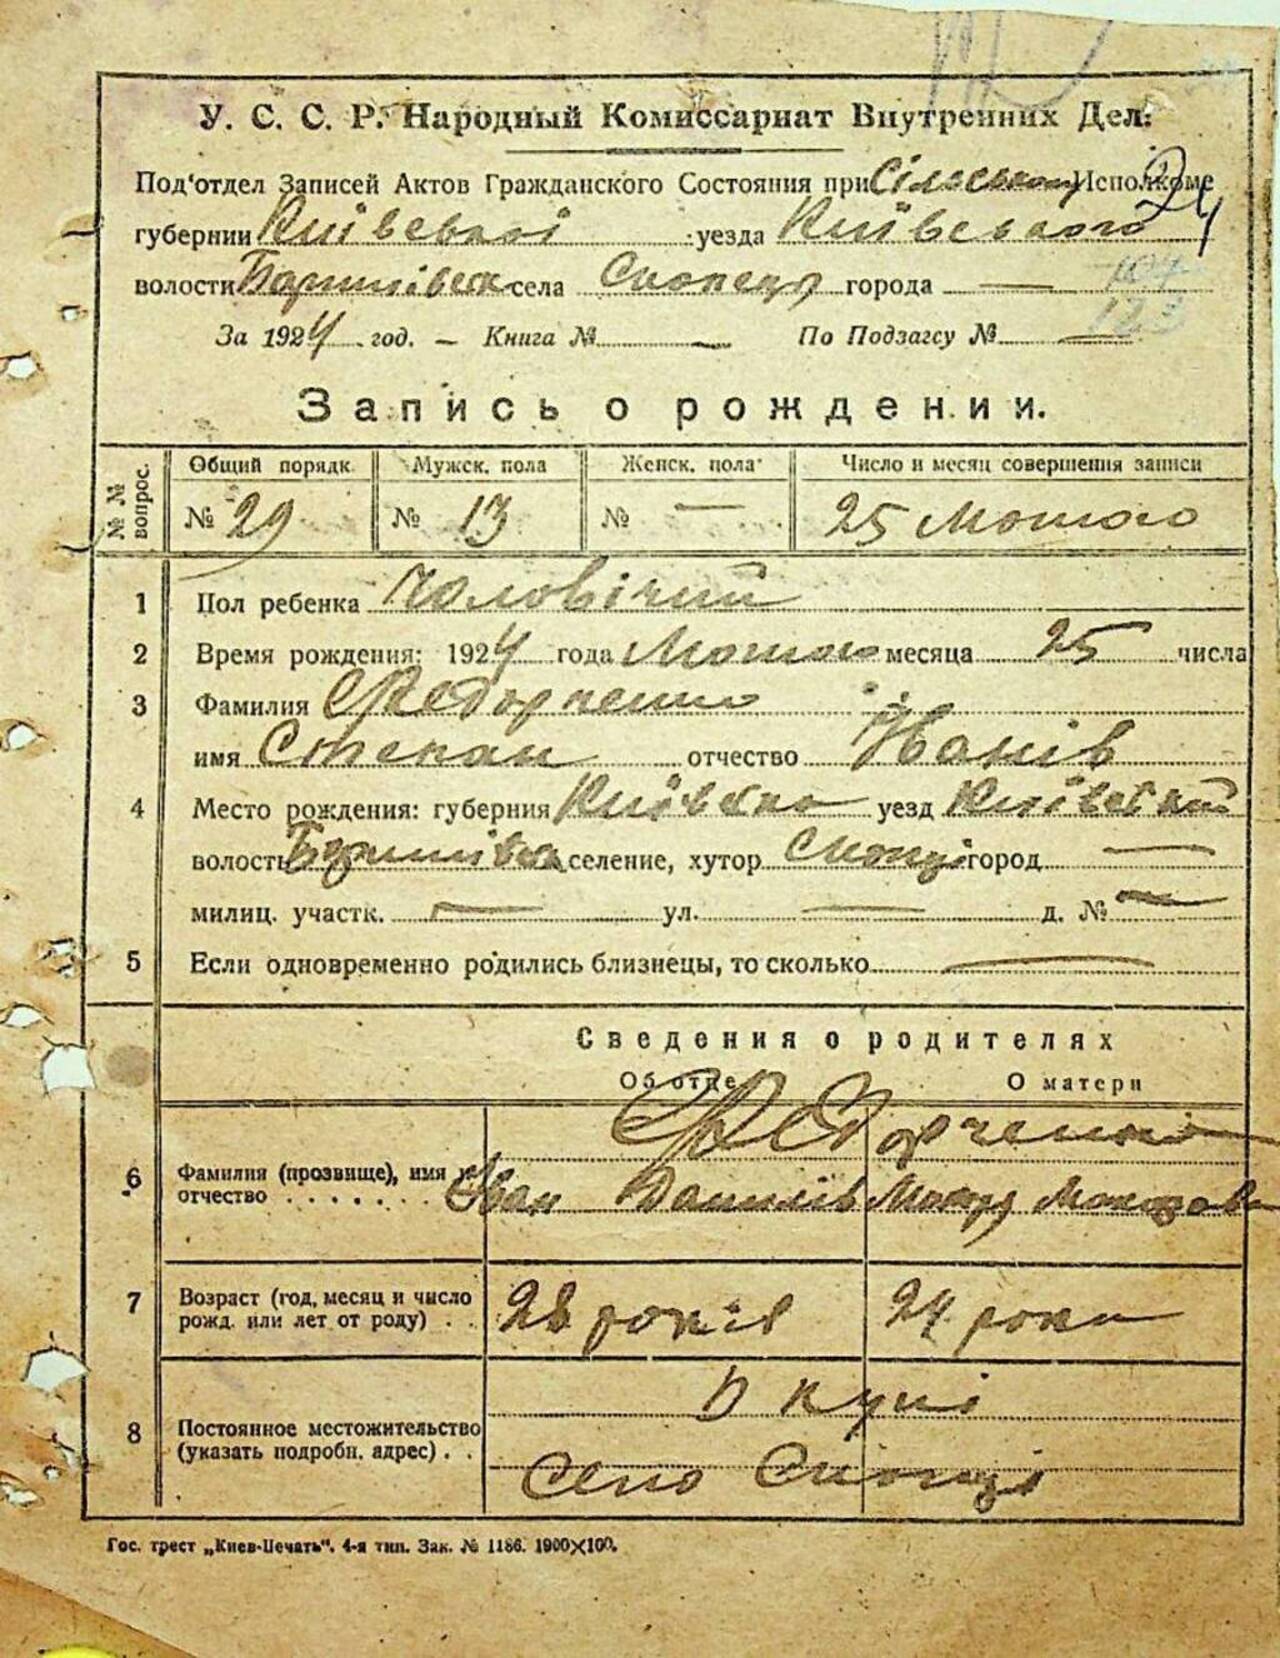 У. С. С. Р. Народный Комиссариат Внутренних Дел.
Под'отдел Записей Актов Гражданского Состояния при Исполкоме
24
губернии Київської уезда Київського
волости села Скопець города —
104
123
За 1924 год. — Книга № — По Подзагсу № —
Запись о рождении.
№ № вопрос. Общий порядк. Мужск. пола Женск. пола Число и месяц совершения записи
№ 29 № 13 № — 25 Мотого
1 Пол ребенка Чоловічий
2 Время рождения: 1924 года Мотого месяца 25 числа
3 Фамилия Федорченко
имя Степан отчество Иванів
4 Место рождения: губерния уезд Київський
волость селение, хутор Скопці город —
милиц. участк. — ул. — д. № —
5 Если одновременно родились близнецы, то сколько —
Сведения о родителях
Об отце О матери
Федорченко
6 Фамилия (прозвище), имя и
отчество . . . . . . . Іван Данилів
7 Возраст (год, месяц и число
рожд. или лет от роду) . . 28 років 24 роки
8 Постоянное местожительство
(указать подробн. адрес) . . В купі
село Скопці
Гос. трест „Киев-Печать". 4-я тип. Зак. № 1186. 1900×100.